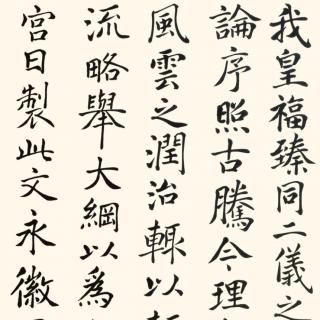 我皇福臻同二儀之
論序照古騰今理
風雲之潤治輒以
流略舉大綱以為
宮日製此文永徽